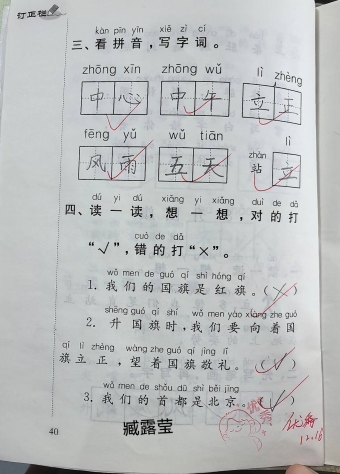 订正栏
kàn pīn yīn xiě zì cí
三、看拼音，写字词。
zhōng xīn zhōng wǔ lì zhèng
中心 中午 立正
fēng yǔ wǔ tiān zhàn lì
风雨 五天 站立
dú yi dú xiǎng yi xiǎng duì de dǎ
四、读一读，想一想，对的打
cuò de dǎ
“√”，错的打“×”。
wǒ men de guó qí shì hóng qí
1. 我们的国旗是红旗。(×)
shēng guó qí shí wǒ men yào xiàng zhe guó
2. 升国旗时，我们要向着国
qí lì zhèng wàng zhe guó qí jìng lǐ
旗立正，望着国旗敬礼。(√)
wǒ men de shǒu dū shì běi jīng
3. 我们的首都是北京。(√)
优秀
12.18
40
臧露莹